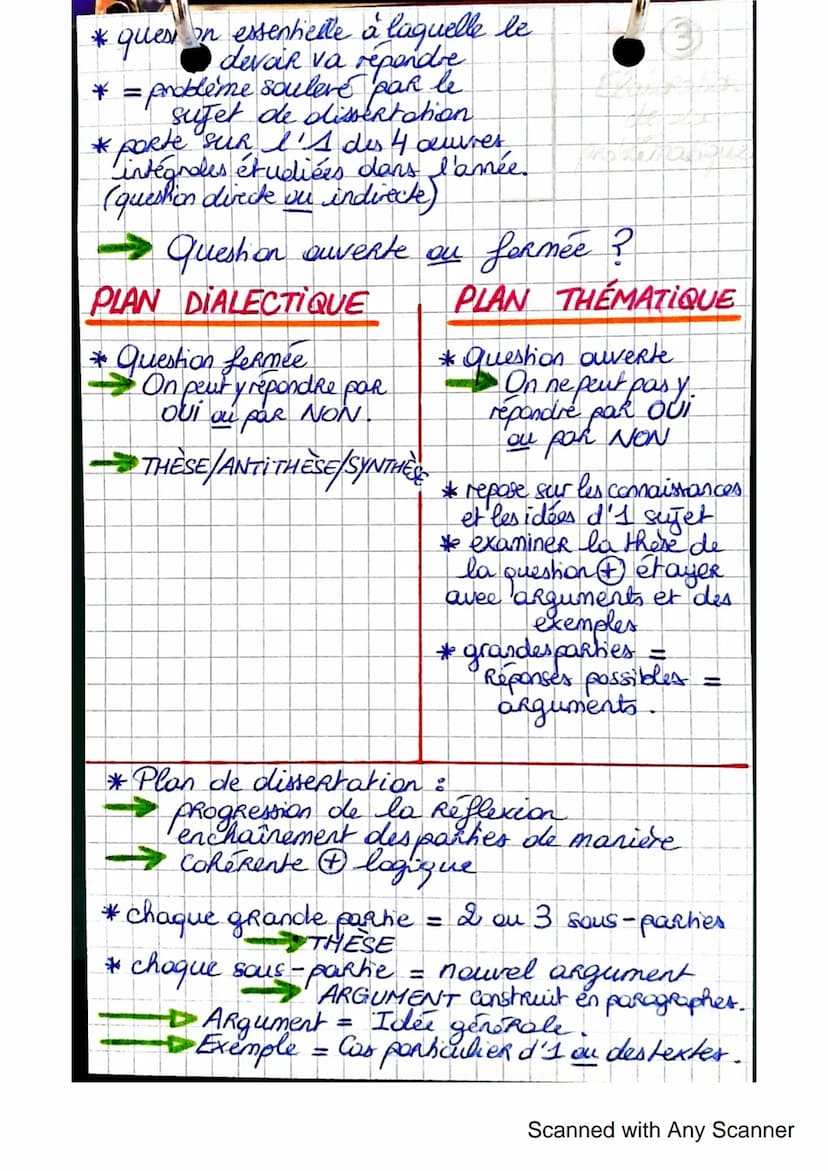 * question essentielle à laquelle le
devoir va répondre
* = problème soulevé par le
sujet de dissertation
* porte sur l'1 des 4 œuvres
intégrales étudiées dans l'année.
(question directe ou indirecte)
3
→ Question ouverte ou fermée ?
PLAN DIALECTIQUE
* Question fermée
→ On peut y répondre par
OUI ou par NON.
→ THÈSE/ANTITHÈSE/SYNTHÈSE
PLAN THÉMATIQUE
* Question ouverte
→ On ne peut pas y
répondre par OUI
ou par NON
* repose sur les connaissances
et les idées d'1 sujet
* examiner la thèse de
la question + étayer
avec arguments et des
exemples
* grandes parties =
Réponses possibles =
arguments.
* Plan de dissertation :
→ progression de la Réflexion
enchaînement des parties de manière
→ cohérente + logique
* chaque grande partie = 2 ou 3 sous-parties
→ THÈSE
* chaque sous-partie = nouvel argument
→ ARGUMENT construit en paragraphes.
→ Argument = Idée générale.
→ Exemple = Cas particulier d'1 ou des textes.
Scanned with Any Scanner